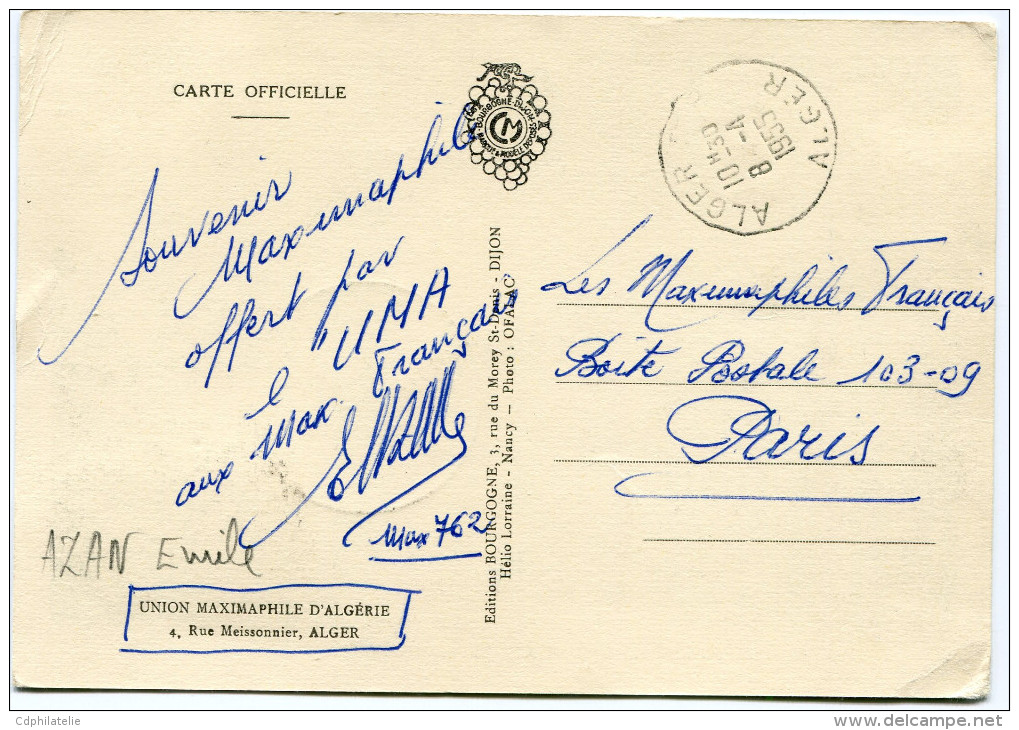 CARTE OFFICIELLE
BOURGOGNE-DIJON
MARQUE & MODELE DEPOSES
CM
ALGER
10H30
8 -4
1955
ALGER
Souvenir
Maximaphile
offert par
l'UMA
aux Max. Français
Max 762
AZAN Emile
UNION MAXIMAPHILE D'ALGÉRIE
4, Rue Meissonnier, ALGER
Editions BOURGOGNE, 3, rue du Morey St-Denis - DIJON
Hélio Lorraine - Nancy — Photo : OFALAC
Les Maximaphiles Français
Boîte Postale 103-09
Paris
Cdphilatelie
delcampe.net